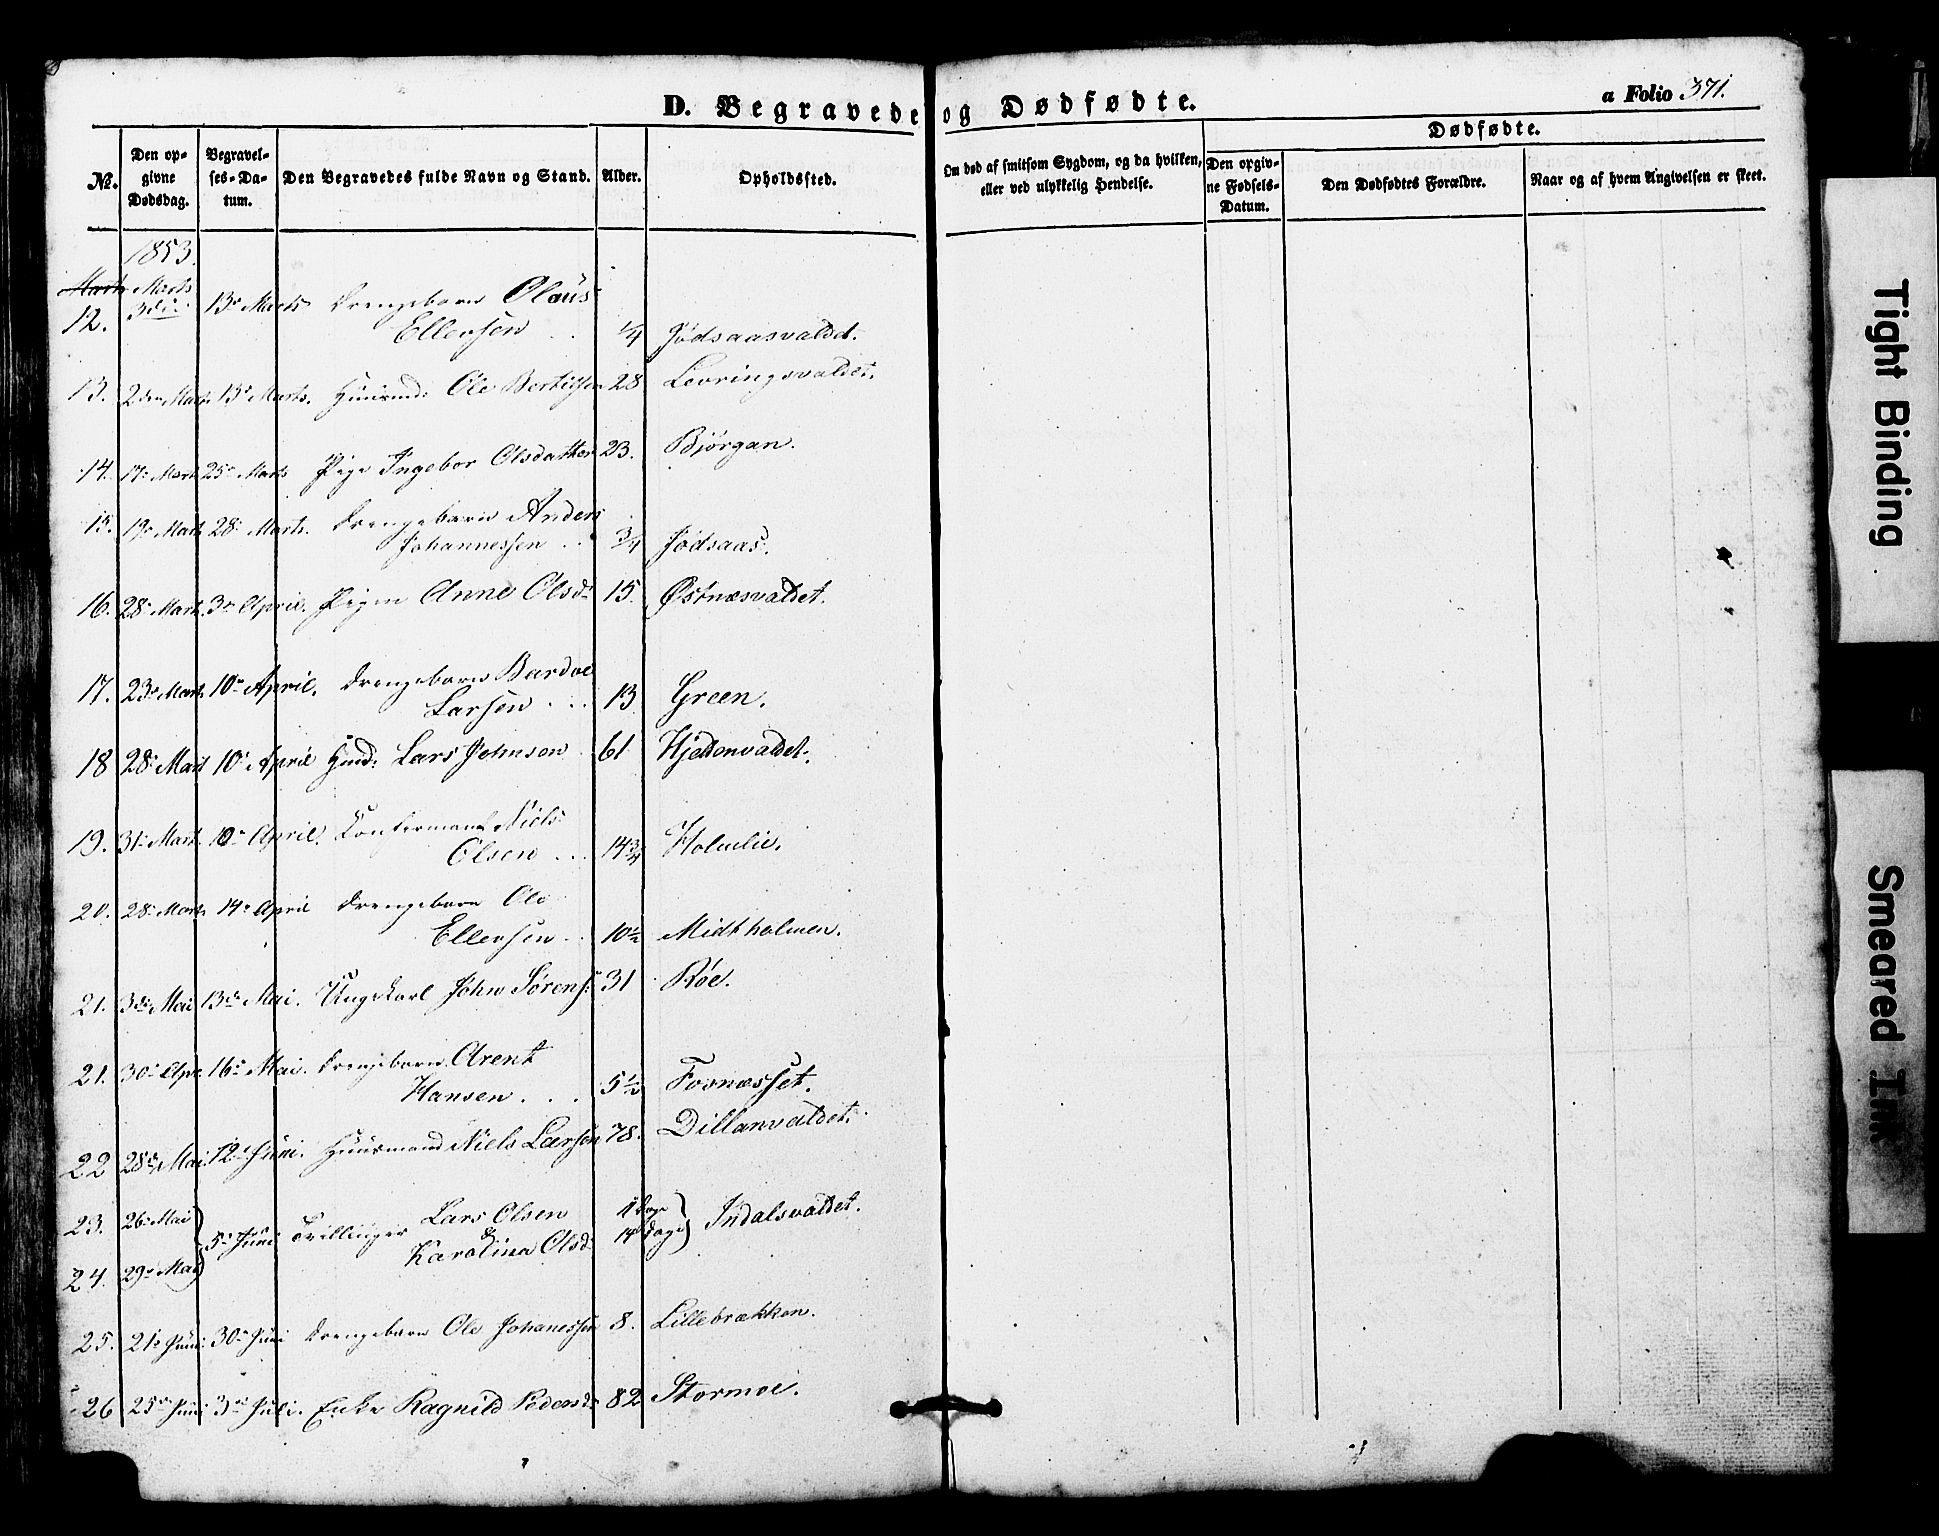 D. Begravede og Dødfødte.
a Folio 371.
Dødfødte.
№.
Den op-
givne
Dødsdag.
Begravel-
ses-Da-
tum.
Den Begravedes fulde Navn og Stand.
Alder.
Opholdssted.
Om død af smitsom Sygdom, og da hvilken,
eller ved ulykkelig Hendelse.
Den opgiv-
ne Fødsels-
Datum.
Den Dødfødtes Forældre.
Naar og af hvem Angivelsen er skeet.
1853.
12. Marts 3die 13de Marts Drengebarn Olaus
Ellersen 1/4 Jødsaasvaldet.
13. 2den Marts 13de Marts. Huusmd: Ole Bertilsen 28 Levringsvaldet.
14. 17de Marts 25de Marts Pige Ingebor Olsdatter 23. Bjørgan.
15. 19de Marts 28de Marts. Drengebarn Anders
Johannessen 3/4 Jødsaas.
16. 28de Marts 3die April. Pigen Anne Olsd: 15. Østnæsvaldet.
17. 23de Marts 10de April. Drengebarn Bardoe
Larsen 13 Green.
18 28de Marts 10de April Huusmd: Lars Johnsen 61 Hjeldenvaldet.
19. 31te Marts 10de April. Confirmand Niels
Olsen 14 3/4 Holmlie.
20. 28de Marts 14de April Drengebarn Ole
Ellersen 10 1/2 Midtholmen.
21. 3die Mai 13de Mai. Ungekarl John Sørens: 31 Røe.
21. 30te Apr. 16de Mai. Drengebarn Arent
Hansen 5 1/2 Fornæsset.
22 28de Mai 12te Juni. Huusmand Niels Larsen 78. Dillanvaldet.
23. 26de Mai 5te Juni Tvillinger Lars Olsen 11 Dage Indalsvaldet.
24. 29de Mai & Karolina Olsd: 14 Dage
25. 21de Juni 30te Juni Drengebarn Ole Johanessen 8. Lillebrækken.
26 25de Juni 3die Juli. Enke Ragnild Pedersd: 82 Stormoe.
Tight Binding
Smeared Ink